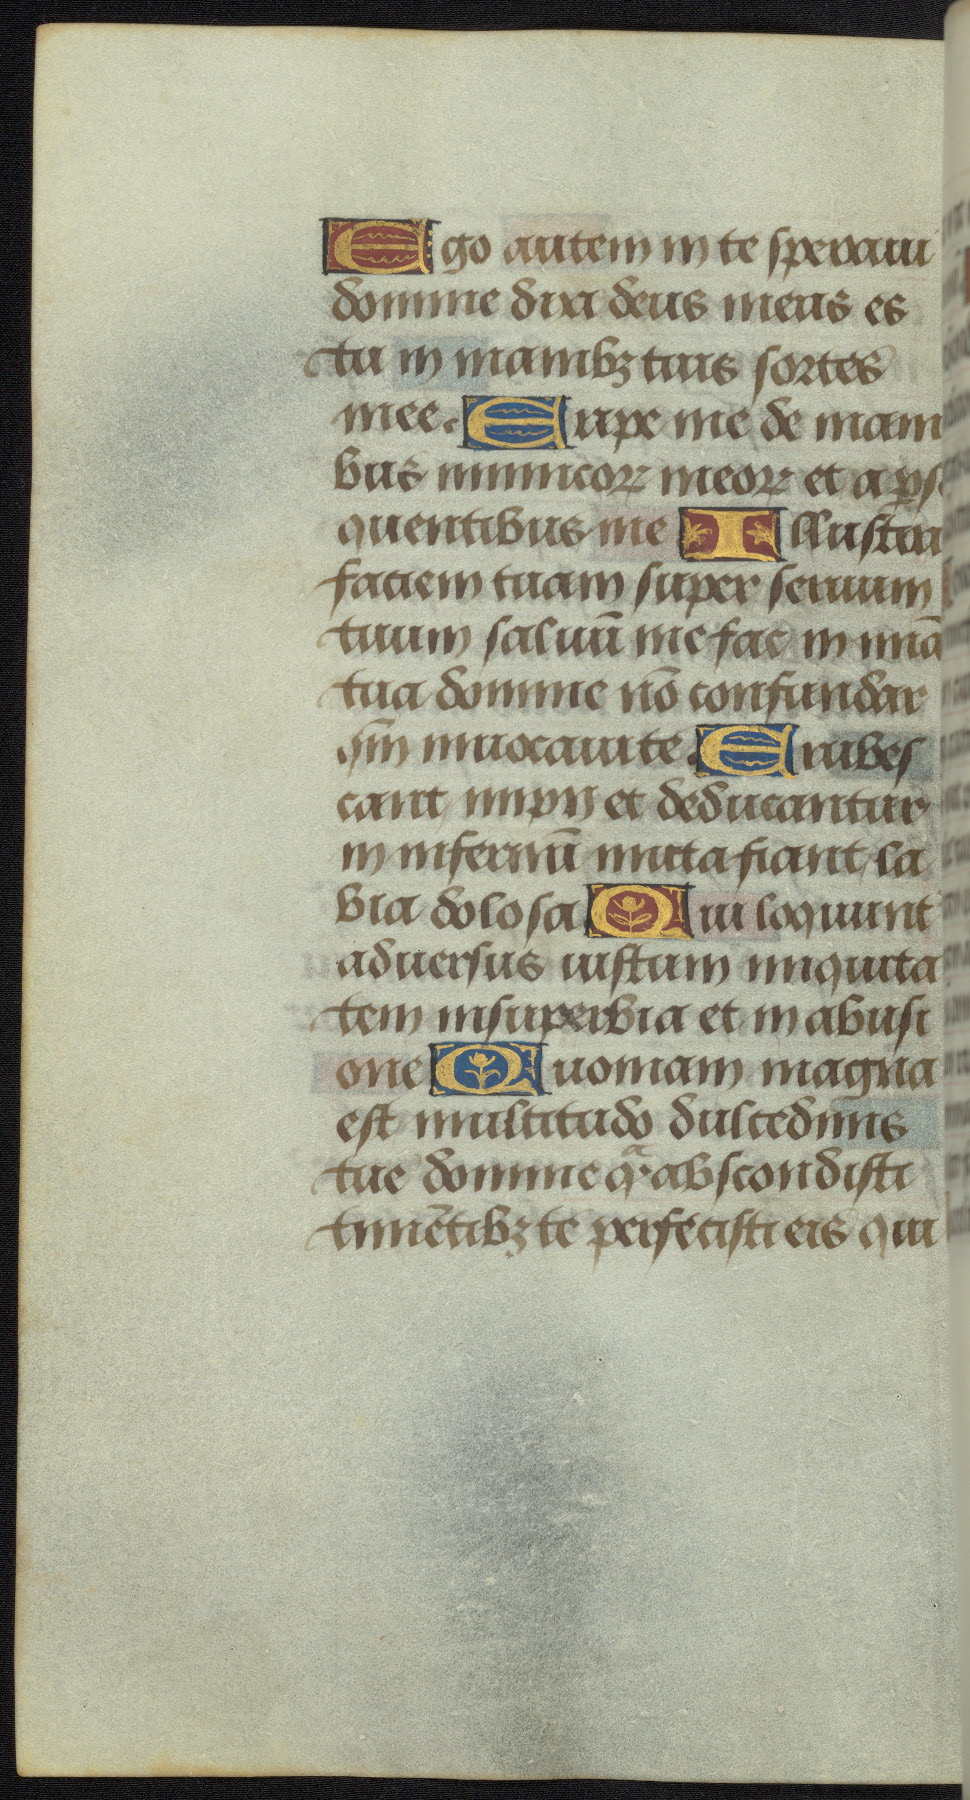 Ego autem in te speraui
domine dixi deus meus es
tu in manibꝫ tuis sortes
mee. Eripe me de mani
bus inimicoꝝ meoꝝ et a ꝑse
quentibus me Illustra
faciem tuam super seruum
tuum saluū me fac in mīa
tua domine nō confundar
qm̄ inuocaui te. Erubes
cant impii et deducantur
in infernū muta fiant la
bia dolosa Qui loquunt
aduersus iustum iniquita
tem in superbia et in abusi
one Quoniam magna
est multitudo dulcedinis
tue domine qͣ abscondisti
timētibꝫ te perfecisti eis qui